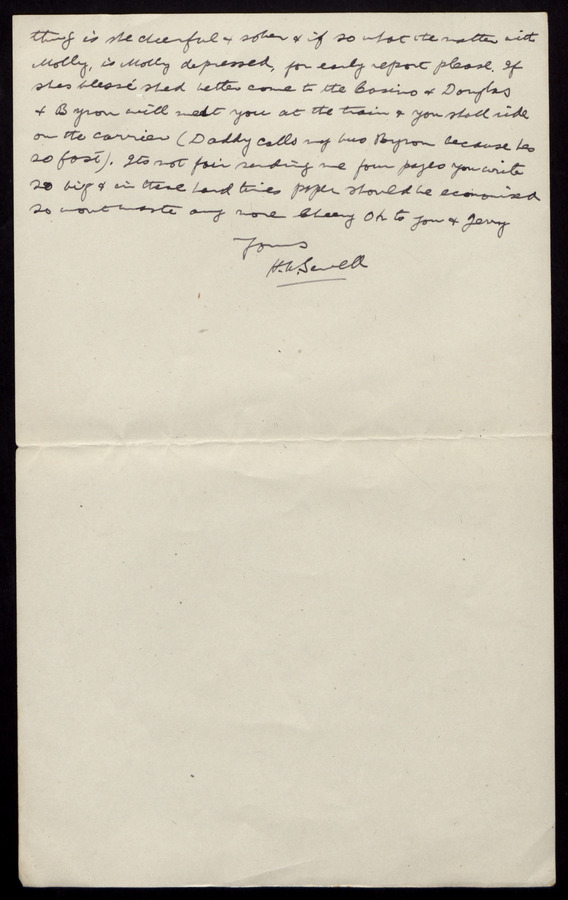 thing is she cheerful & sober & if so what the matter with
Molly, is Molly depressed, for early report please. If
shes blessé shed better come to the Casino & Douglas
& Byron will meet you at the train & you shall ride
on the carrier (Daddy calls my bus Byron because hes
so fast). Its not fair sending me four pages you write
so big & in these hard times paper should be economised
so wont waste any more Cheery Oh to you & Jerry
Yours
H.W. Sewell